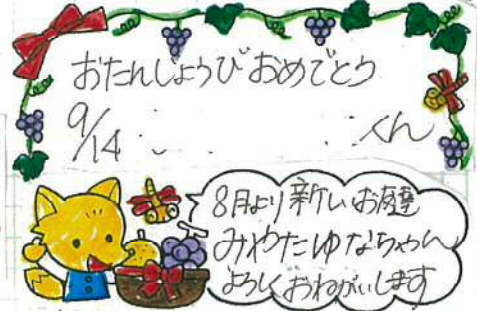 おたんじょうびおめでとう
9/14 くん
8月より新しいお友達
みやたゆなちゃん
よろしくおねがいします